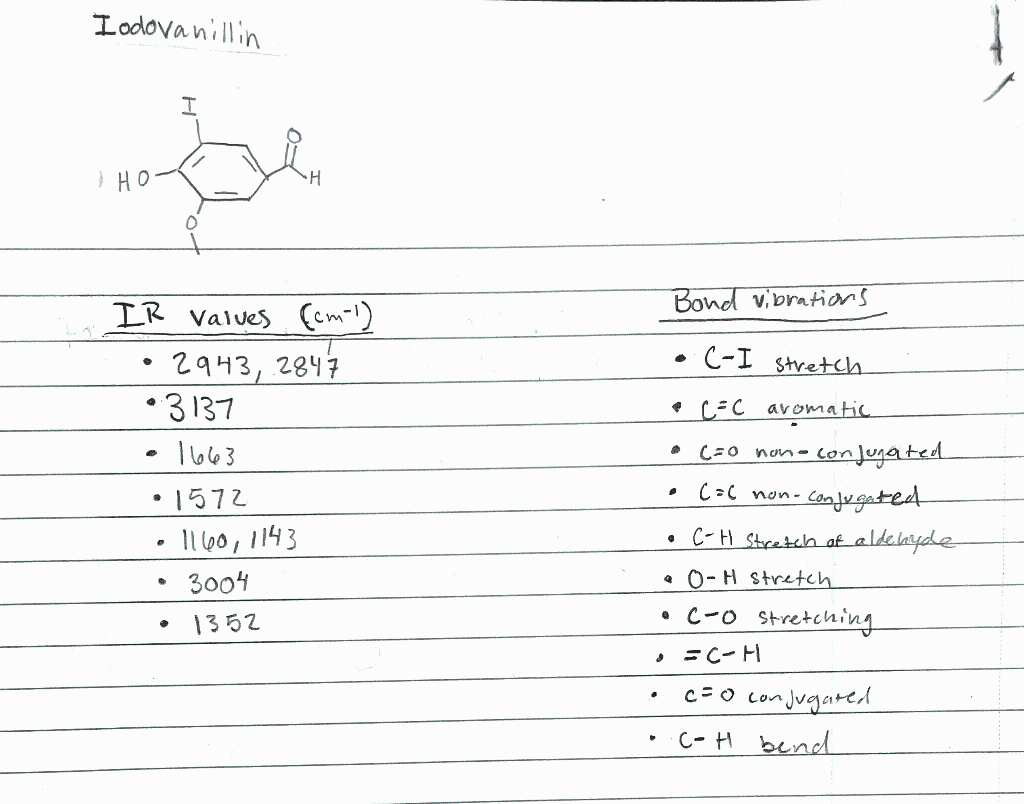 Iodovanillin
I
O
HO
H
O
IR values (cm-1)
Bond vibrations
• 2943, 2847
• C-I stretch
• 3137
• C=C aromatic
• 1663
• C=O non-conjugated
• 1572
• C=C non-conjugated
• 1160, 1143
• C-H stretch of aldehyde
• 3004
• O-H stretch
• 1352
• C-O stretching
• =C-H
• C=O conjugated
• C-H bend